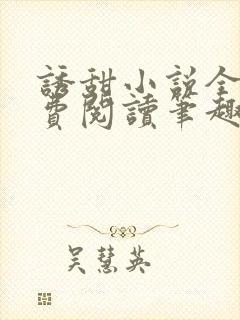 誘甜小說全
費閱讀筆趣
吳慧英